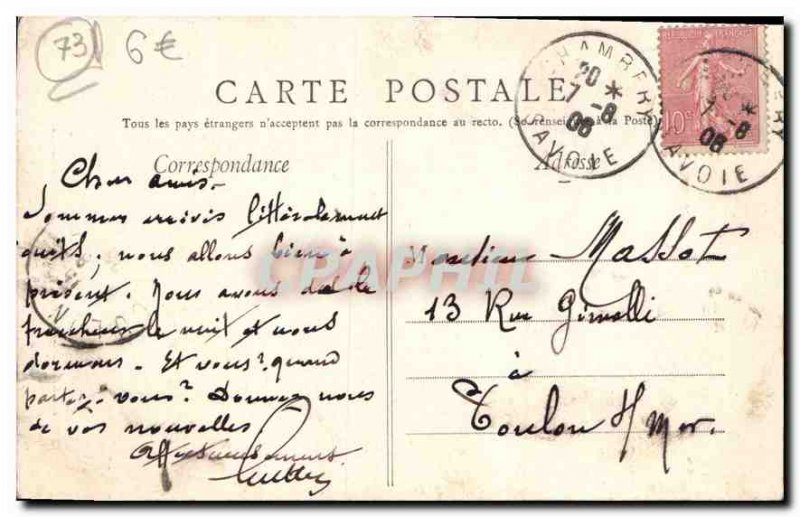 73 6€
CARTE POSTALE
Tous les pays étrangers n'acceptent pas la correspondance au recto. (Se renseigner à la Poste)
Correspondance
Adresse
CHAMBERY
20 *
7 - 8
06
SAVOIE
REPUBLIQUE FRANÇAISE
10c
7 - 8 *
06
SAVOIE
Cher amis -
Sommes arrivés littéralement
cuits, nous allons bien à
présent. Nous avons de la
fraicheur la nuit et nous
dormons. Et vous? quand
partez-vous? Donnez nous
de vos nouvelles
Affectueusement
Monsieur Massot
13 Rue
à
Toulon s/ Mer.
CPAPHIL